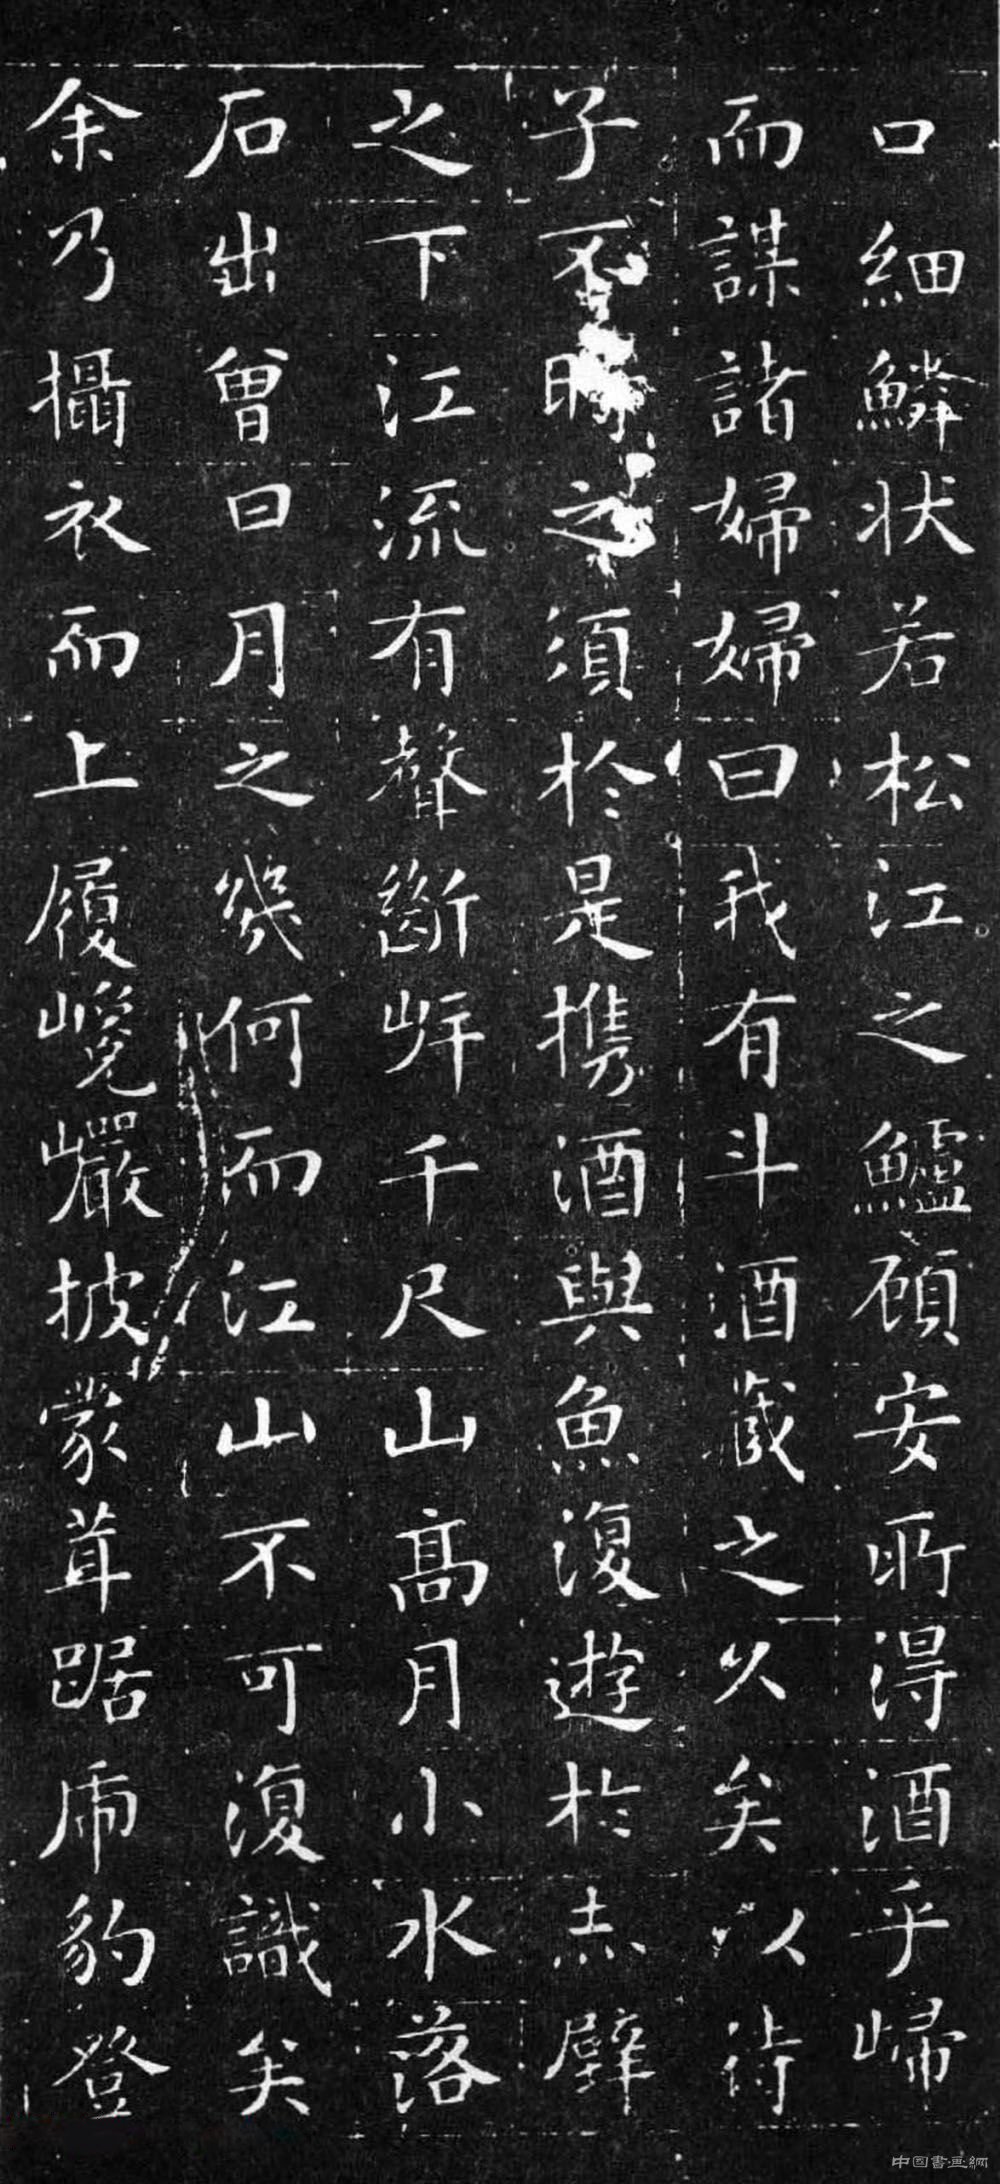 口細鱗狀若松江之鱸顧安所得酒乎歸
而謀諸婦婦曰我有斗酒藏之久矣以待
子不時之須於是攜酒與魚復遊於赤壁
之下江流有聲斷岸千尺山高月小水落
石出曾日月之幾何而江山不可復識矣
余乃攝衣而上履巉巖披蒙茸踞虎豹登
中国書画網